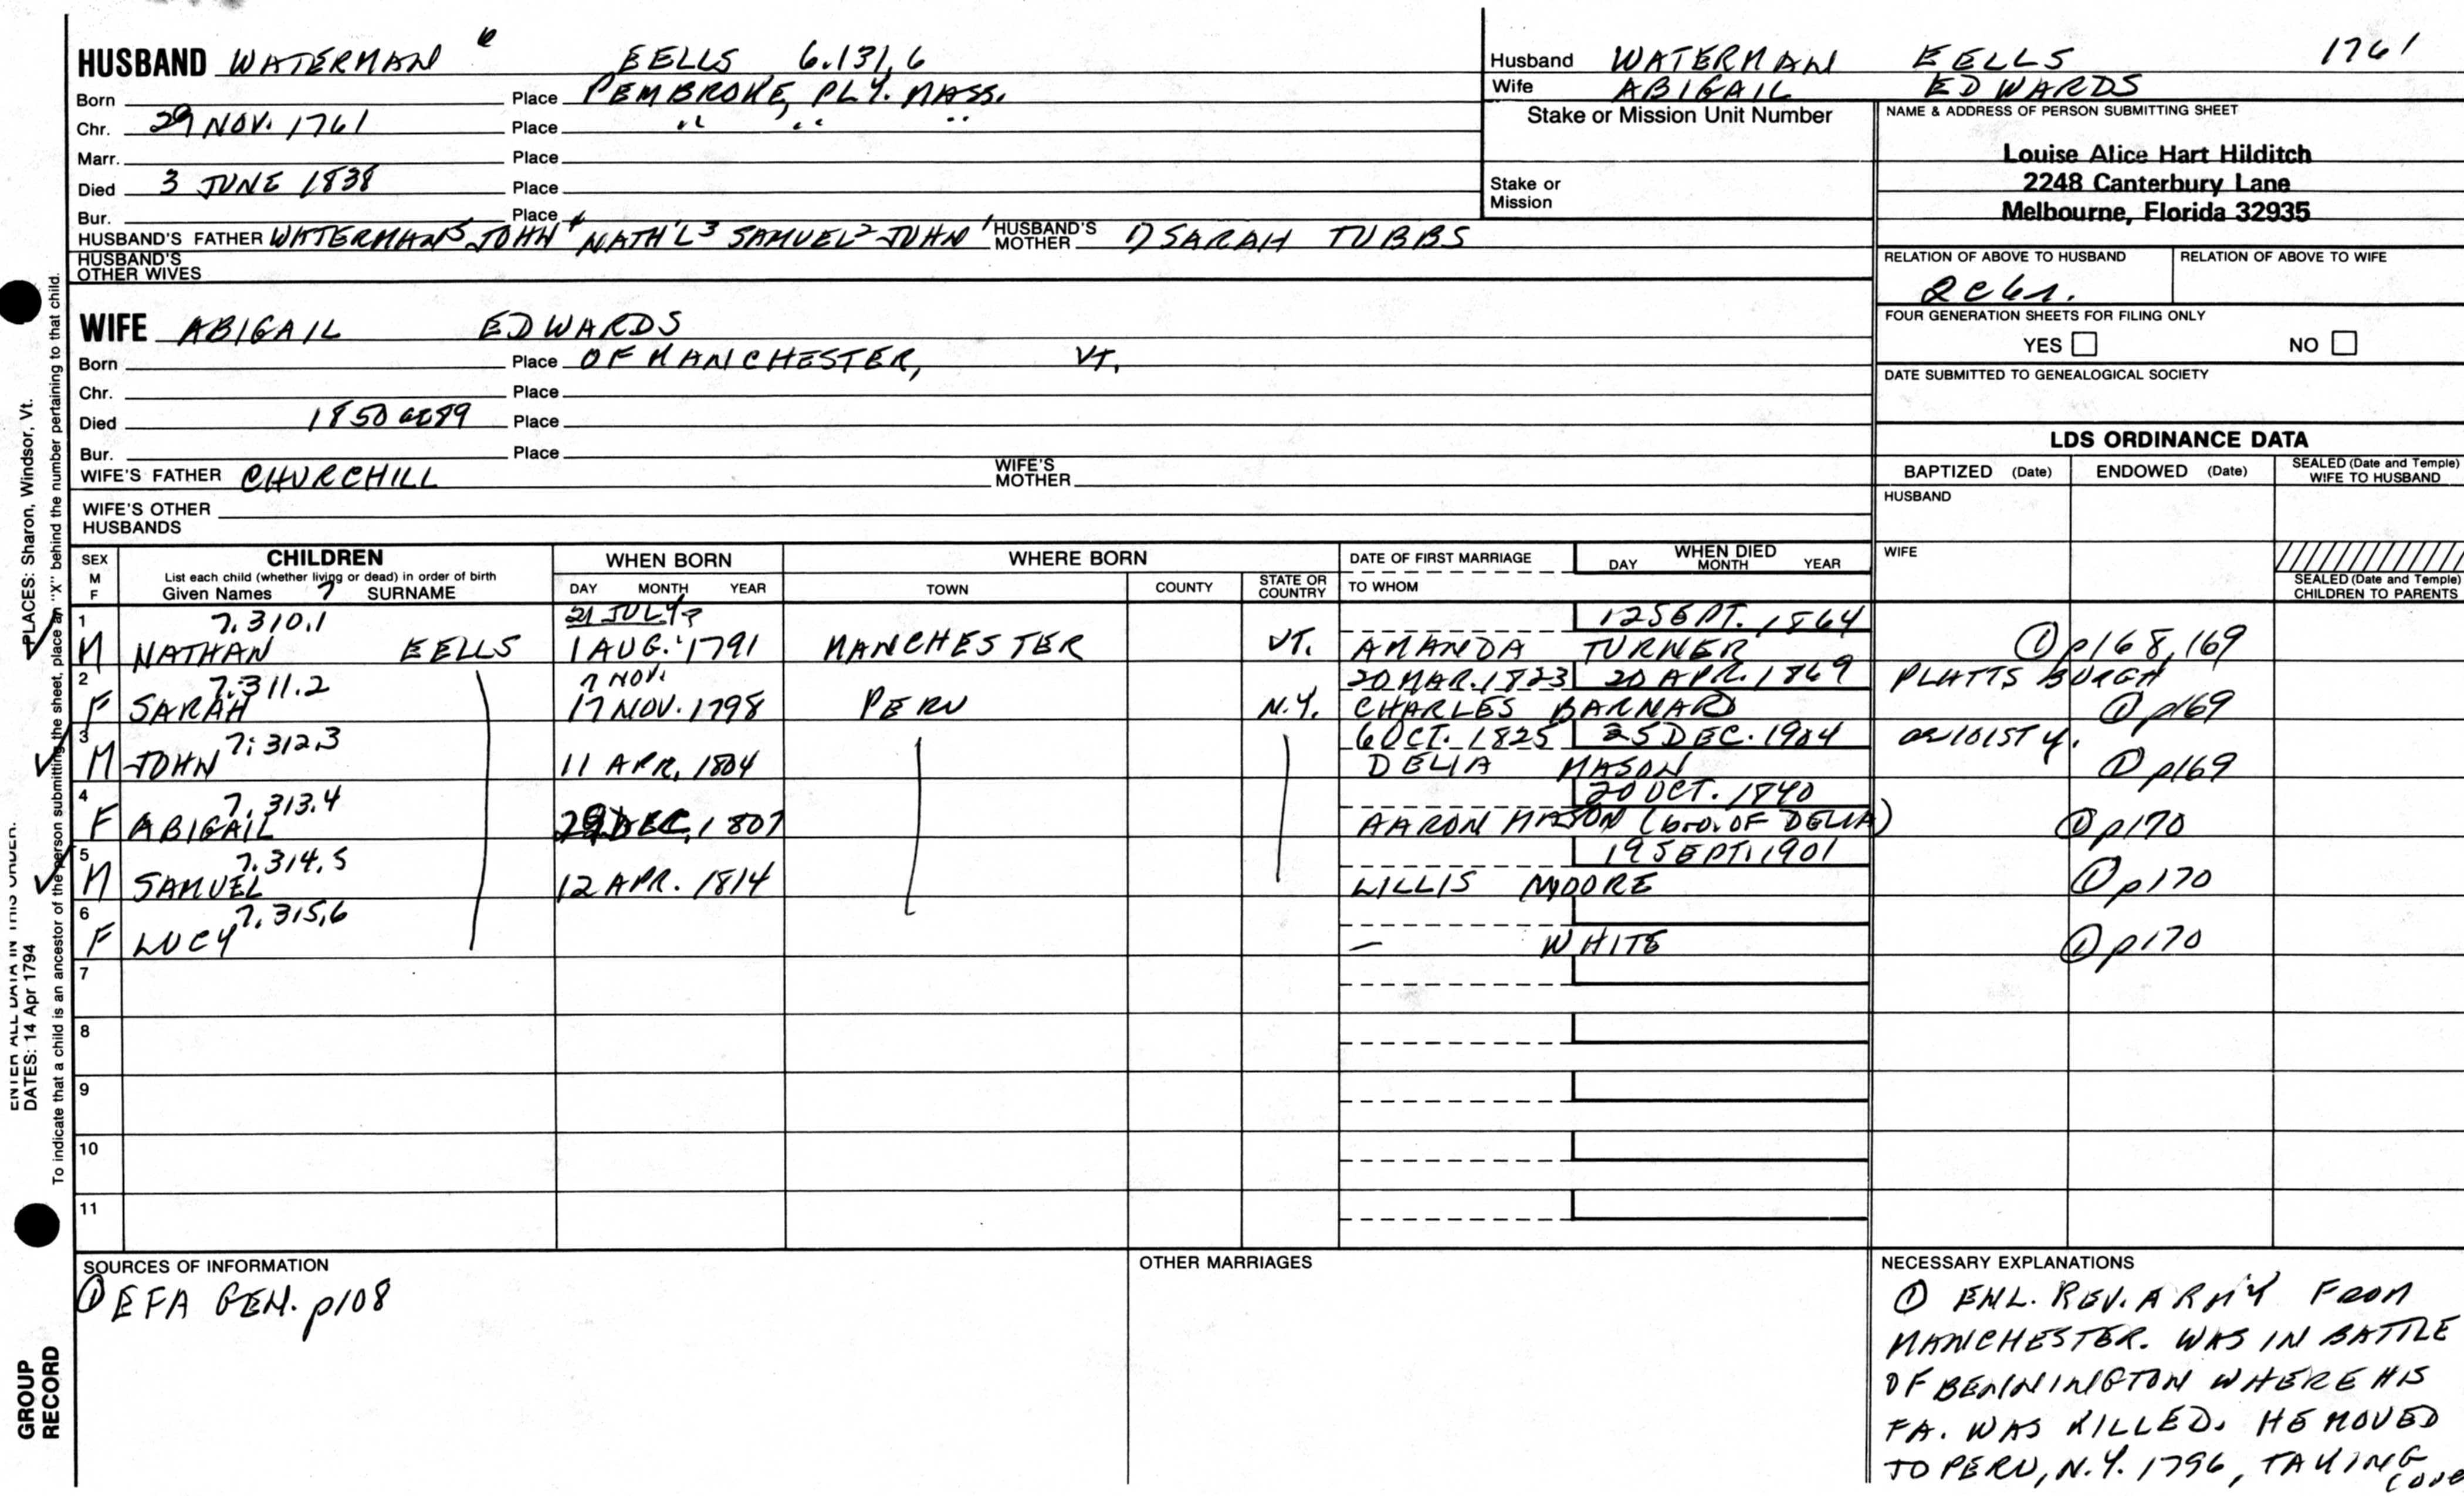 HUSBAND WATERMAN 6 EELLS 6.131.6
Born Place PEMBROKE, PLY. MASS.
Chr. 29 NOV. 1761 Place " " "
Marr. Place
Died 3 JUNE 1838 Place
Bur. Place
HUSBAND'S FATHER WATERMAN5 JOHN4 NATH'L3 SAMUEL2 JOHN1 HUSBAND'S MOTHER 1) SARAH TUBBS
HUSBAND'S OTHER WIVES
Husband WATERMAN EELLS 1761
Wife ABIGAIL EDWARDS
Stake or Mission Unit Number
Stake or Mission
NAME & ADDRESS OF PERSON SUBMITTING SHEET
Louise Alice Hart Hilditch
2248 Canterbury Lane
Melbourne, Florida 32935
RELATION OF ABOVE TO HUSBAND RELATION OF ABOVE TO WIFE
FOUR GENERATION SHEETS FOR FILING ONLY
YES NO
DATE SUBMITTED TO GENEALOGICAL SOCIETY
WIFE ABIGAIL EDWARDS
Born Place OF MANCHESTER, VT.
Chr. Place
Died 1850 Place
Bur. Place
WIFE'S FATHER CHURCHILL WIFE'S MOTHER
WIFE'S OTHER HUSBANDS
LDS ORDINANCE DATA
BAPTIZED (Date) ENDOWED (Date) SEALED (Date and Temple) WIFE TO HUSBAND
HUSBAND
WIFE
SEALED (Date and Temple) CHILDREN TO PARENTS
SEX M F
CHILDREN
List each child (whether living or dead) in order of birth
Given Names 7 SURNAME
WHEN BORN
DAY MONTH YEAR
WHERE BORN
TOWN COUNTY STATE OR COUNTRY
DATE OF FIRST MARRIAGE
TO WHOM
WHEN DIED
DAY MONTH YEAR
1 7.310.1 21 JULY? 12 SEPT. 1864
M NATHAN EELLS 1 AUG. 1791 MANCHESTER VT. AMANDA TURNER ① p168,169
2 7.311.2 7 NOV. 20 MAR. 1823 20 APR. 1869 PLATTSBURGH
F SARAH 17 NOV. 1798 PERU N.Y. CHARLES BARNARD ① p169
3 7.312.3 6 OCT. 1825 25 DEC. 1904
M JOHN 11 APR. 1804 DELIA MASON ① p169
4 7.313.4 20 OCT. 1840
F ABIGAIL 29 DEC. 1807 AARON MASON (bro. OF DELIA) ① p170
5 7.314.5 19 SEPT. 1901
M SAMUEL 12 APR. 1814 WILLIS MOORE ① p170
6 7.315.6
F LUCY — WHITE ① p170
7
8
9
10
11
SOURCES OF INFORMATION
① EFA GEN. p108
OTHER MARRIAGES
NECESSARY EXPLANATIONS
① ENL. REV. ARMY FROM
MANCHESTER. WAS IN BATTLE
OF BENNINGTON WHERE HIS
FA. WAS KILLED. HE MOVED
TO PERU, N.Y. 1796, TAKING
PLACES: Sharon, Windsor, Vt.
ENTER ALL DATA IN THIS ORDER:
DATES: 14 Apr 1794
To indicate that a child is an ancestor of the person submitting the sheet, place an "X" behind the number pertaining to that child.
GROUP
RECORD